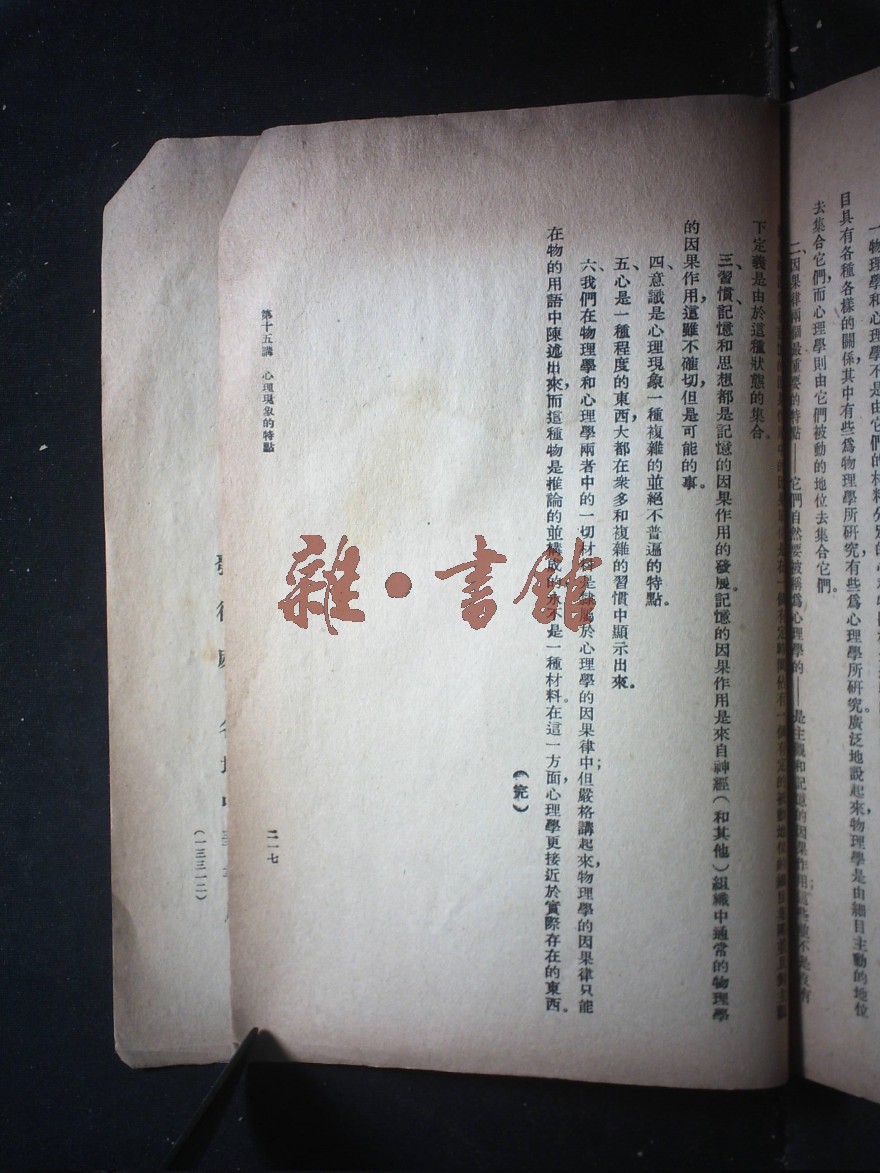 目具有各種各樣的關係，其中有些爲物理學所研究，有些爲心理學所研究。廣泛地說起來，物理學是由細目主動的地位
去集合它們，而心理學則由它們被動的地位去集合它們。
二、因果律兩個最重要的特點——它們自然要被稱爲心理學的——是主觀和記憶的因果作用；這些
下定義是由於這種狀態的集合。
三、習慣、記憶和思想都是記憶的因果作用的發展。記憶的因果作用是來自神經（和其他）組織中通常的物理學
的因果作用，這雖不確切，但是可能的事。
四、意識是心理現象一種複雜的並絕不普遍的特點。
五、心是一種程度的東西，大都在衆多和複雜的習慣中顯示出來。
六、我們在物理學和心理學兩者中的一切材料是隸屬於心理學的因果律中；但嚴格講起來，物理學的因果律只能
在物的用語中陳述出來，而這種物是推論的並構成的，永不是一種材料。在這一方面，心理學更接近於實際存在的東西。
（完）
第十五講　心理現象的特點
二一七
（一三三一二）
雜·書館